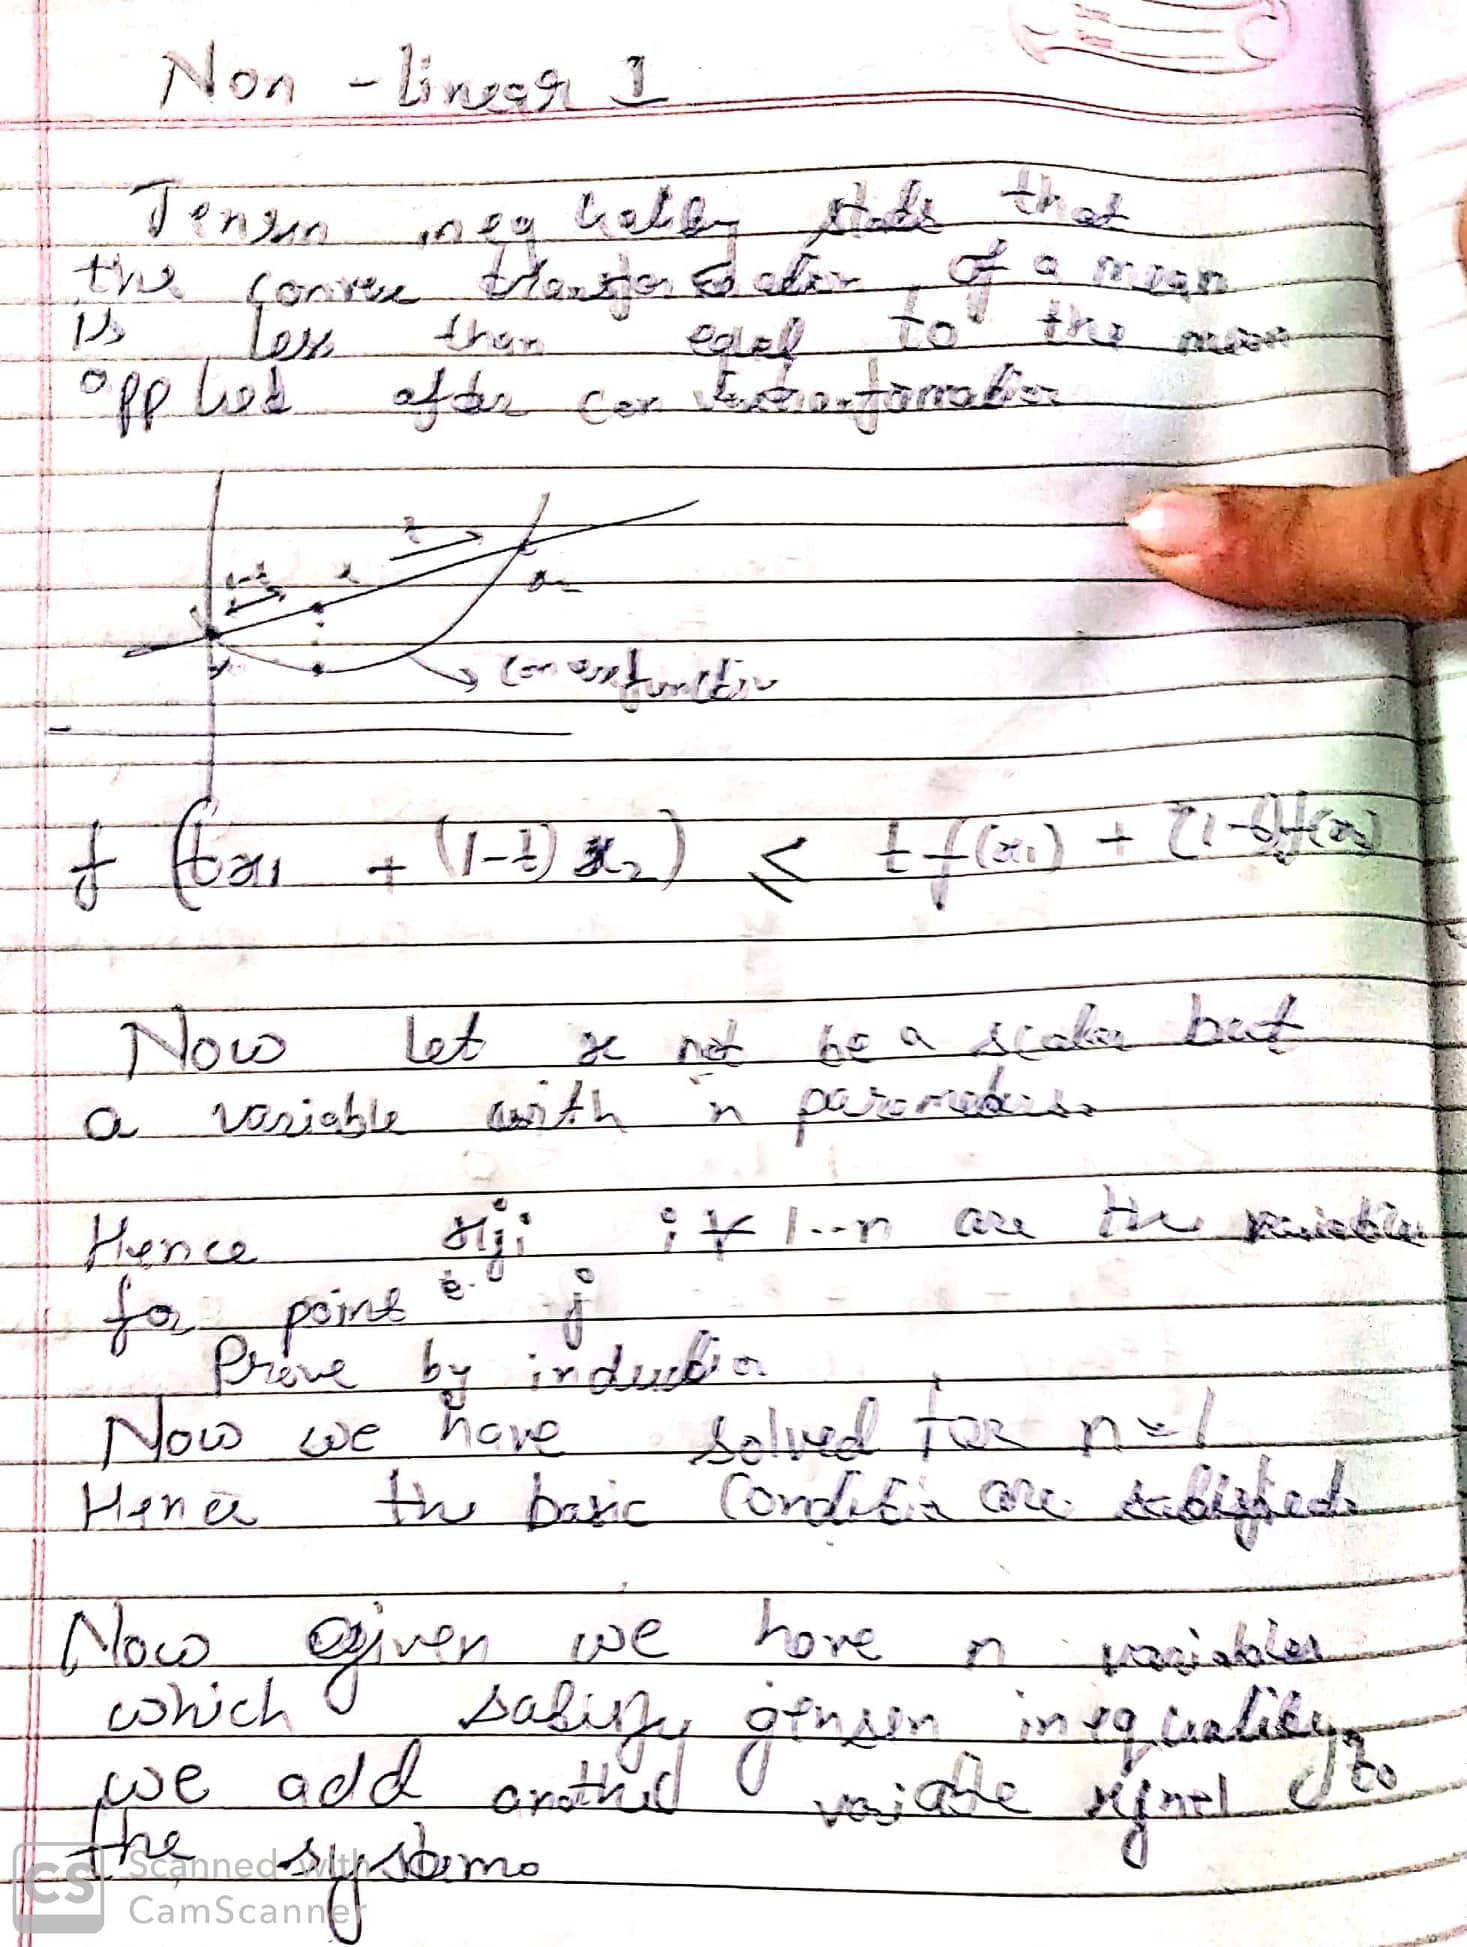 Non - linear 1
Jensen inequality states that
the convex transformation of a mean
is less than equal to the mean
applied after
1-t
t
x2
convex function
f (tx1 + (1-t) x2) ≤ t f(x1) + (1-t)f(x2)
Now let x not be a scalar but
a variable with n parameters.
Hence xji i ∀ 1..n are the variables
for point j
Prove by induction
Now we have solved for n=1
Hence the basic condition are satisfied.
Now given we have n variables
which satisfy jensen inequality,
we add another variable to
the system.
CS Scanned with
CamScanner